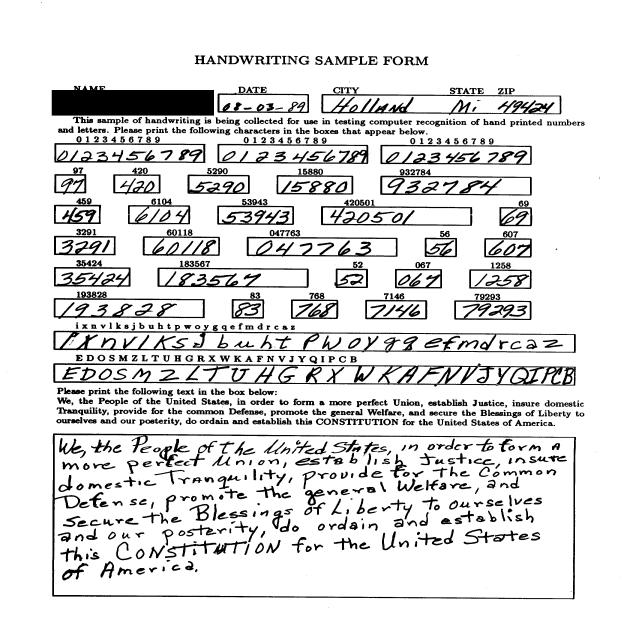 HANDWRITING SAMPLE FORM
NAME DATE CITY STATE ZIP
08-03-89 Holland Mi 49424
This sample of handwriting is being collected for use in testing computer recognition of hand printed numbers
and letters. Please print the following characters in the boxes that appear below.
0 1 2 3 4 5 6 7 8 9 0 1 2 3 4 5 6 7 8 9 0 1 2 3 4 5 6 7 8 9
0123456789 0123456789 0123456789
97 420 5290 15880 932784
97 420 5290 15880 932784
459 6104 53943 420501 69
459 6104 53943 420501 69
3291 60118 047763 56 607
3291 60118 047763 56 607
35424 183567 52 067 1258
35424 183567 52 067 1258
193828 83 768 7146 79293
193828 83 768 7146 79293
i x n v l k s j b u h t p w o y g q e f m d r c a z
ixnvlksjbuhtpwoygqefmdrcaz
E D O S M Z L T U H G R X W K A F N V J Y Q I P C B
EDOSMZLTUHGRXWKAFNVJYQIPCB
Please print the following text in the box below:
We, the People of the United States, in order to form a more perfect Union, establish Justice, insure domestic
Tranquility, provide for the common Defense, promote the general Welfare, and secure the Blessings of Liberty to
ourselves and our posterity, do ordain and establish this CONSTITUTION for the United States of America.
We, the People of the United States, in order to form a
more perfect Union, establish Justice, insure
domestic Tranquility, provide for the Common
Defense, promote the general Welfare, and
secure the Blessings of Liberty to ourselves
and our posterity, do ordain and establish
this CONSTITUTION for the United States
of America.